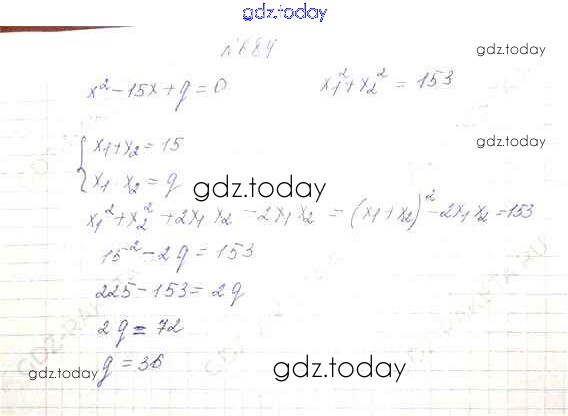 gdz.today
№ 684
gdz.today
x² - 15x + q = 0    x₁² + x₂² = 153
{ x₁ + x₂ = 15
x₁ · x₂ = q
gdz.today
x₁² + x₂² + 2x₁x₂ - 2x₁x₂ = (x₁ + x₂)² - 2x₁x₂ = 153
15² - 2q = 153
225 - 153 = 2q
2q = 72
q = 36
gdz.today
gdz.today
gdz.today